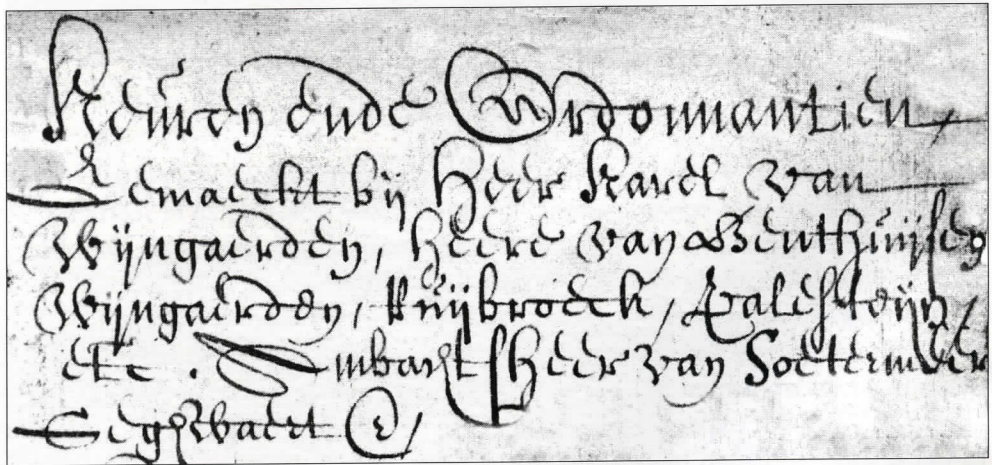 Keuren ende Ordonnantien
Gemaeckt bij Heer Karel van
Wijngaerden, Heere van Benthuijsen
Wijngaerden, Ruijbroeck, Palesteijn,
etc. Ambachtsheer van Soetermeer
Seghwaert